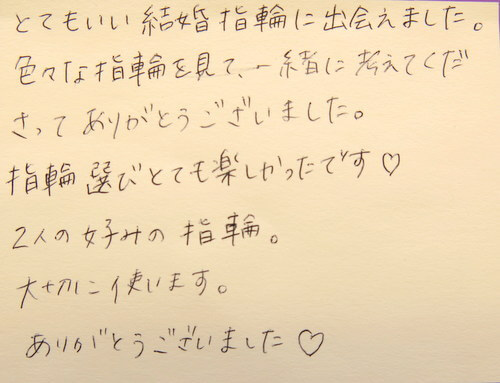 とてもいい結婚指輪に出会えました。
色々な指輪を見て、一緒に考えてくだ
さってありがとうございました。
指輪選びとても楽しかったです♡
2人の好みの指輪。
大切に使います。
ありがとうございました♡